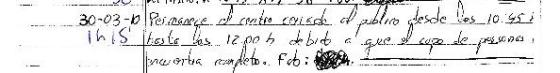 30-03-10 Permanece el centro cerrado al público desde las 10:45 h
14:15 hasta las 12:00 h debido a que el cupo de personas
encuentra completo. Fdo: